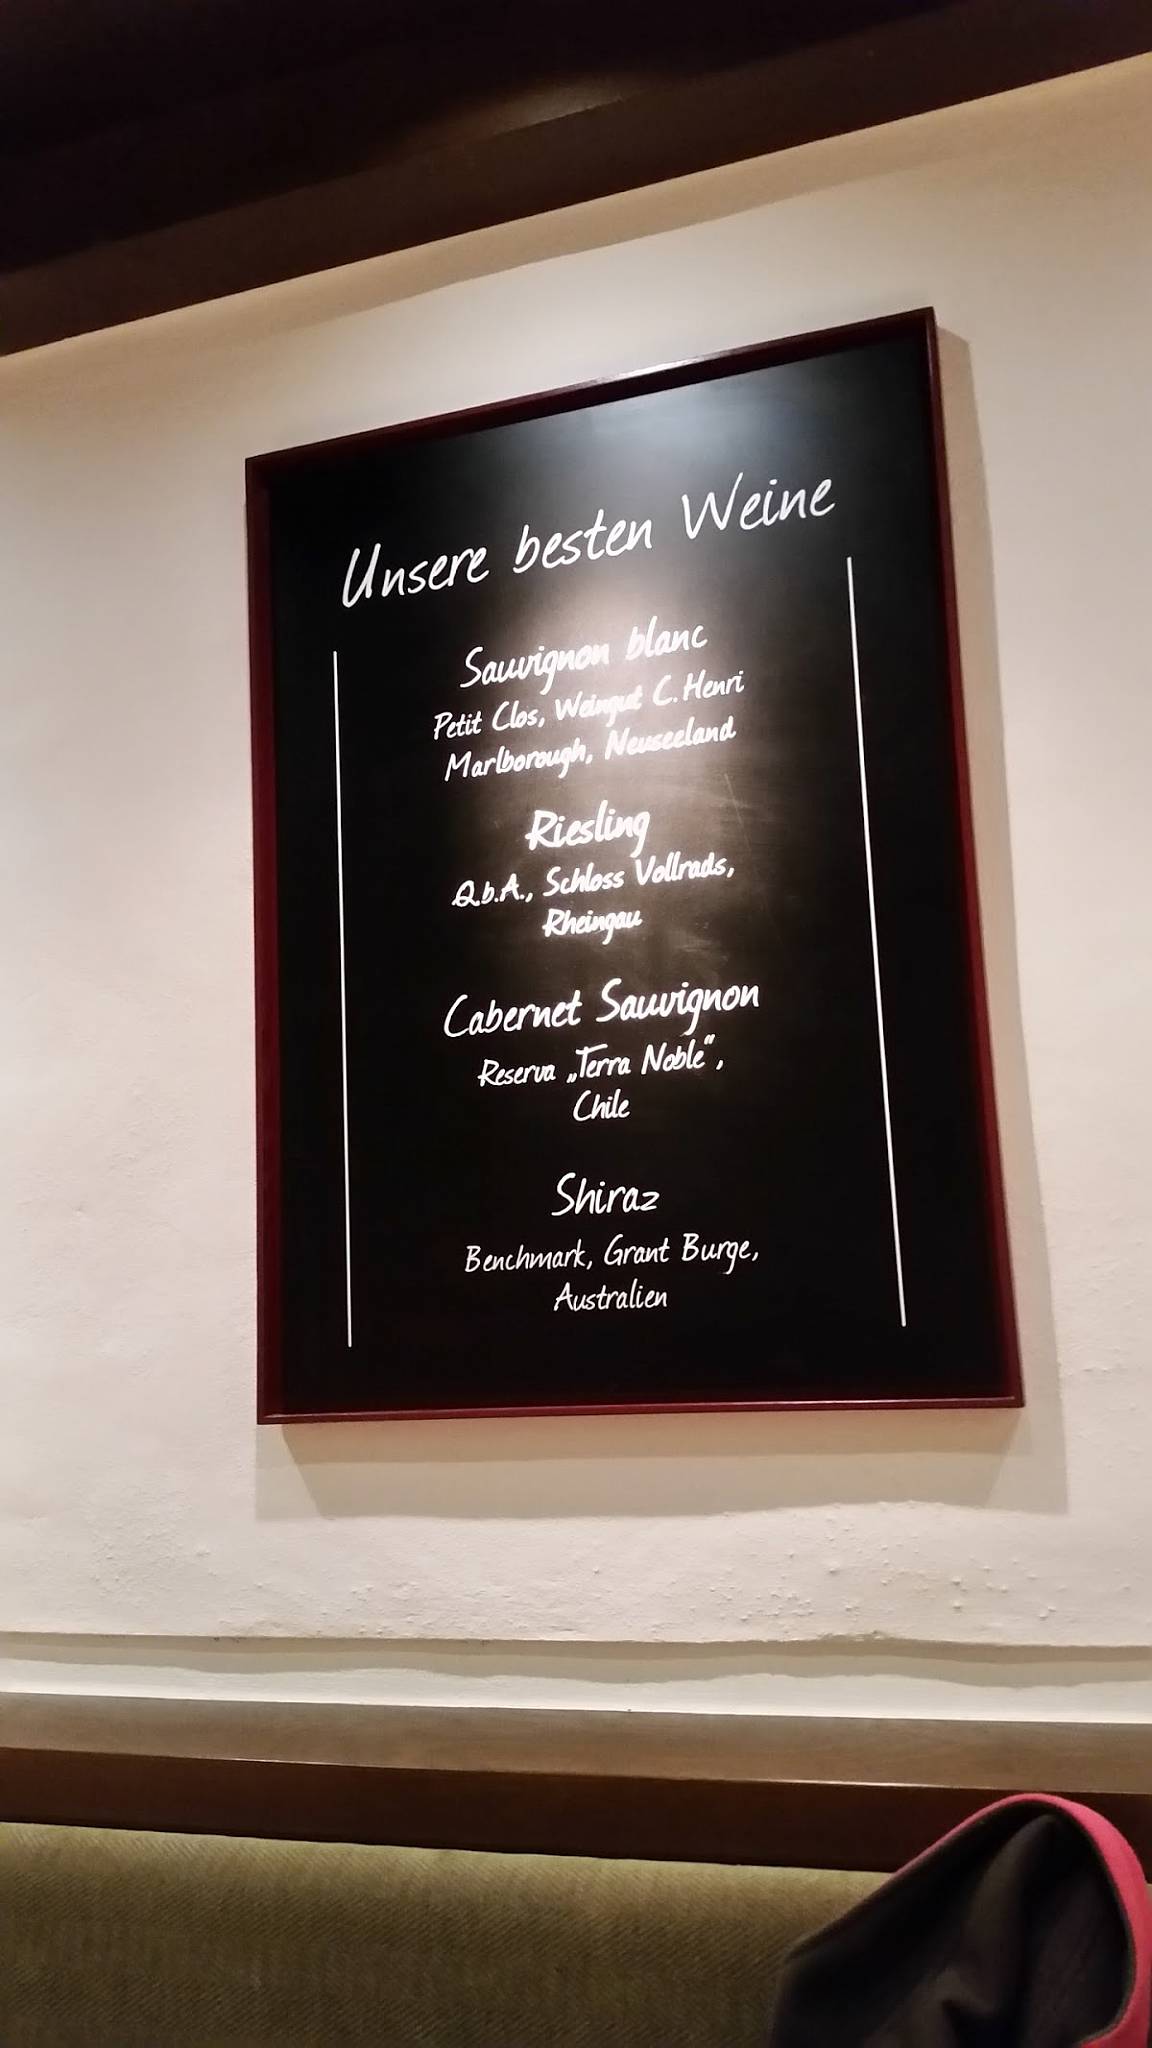 Unsere besten Weine
Sauvignon blanc
Petit Clos, Weingut C. Henri
Marlborough, Neuseeland
Riesling
Q.b.A., Schloss Vollrads,
Rheingau
Cabernet Sauvignon
Reserva „Terra Noble“,
Chile
Shiraz
Benchmark, Grant Burge,
Australien